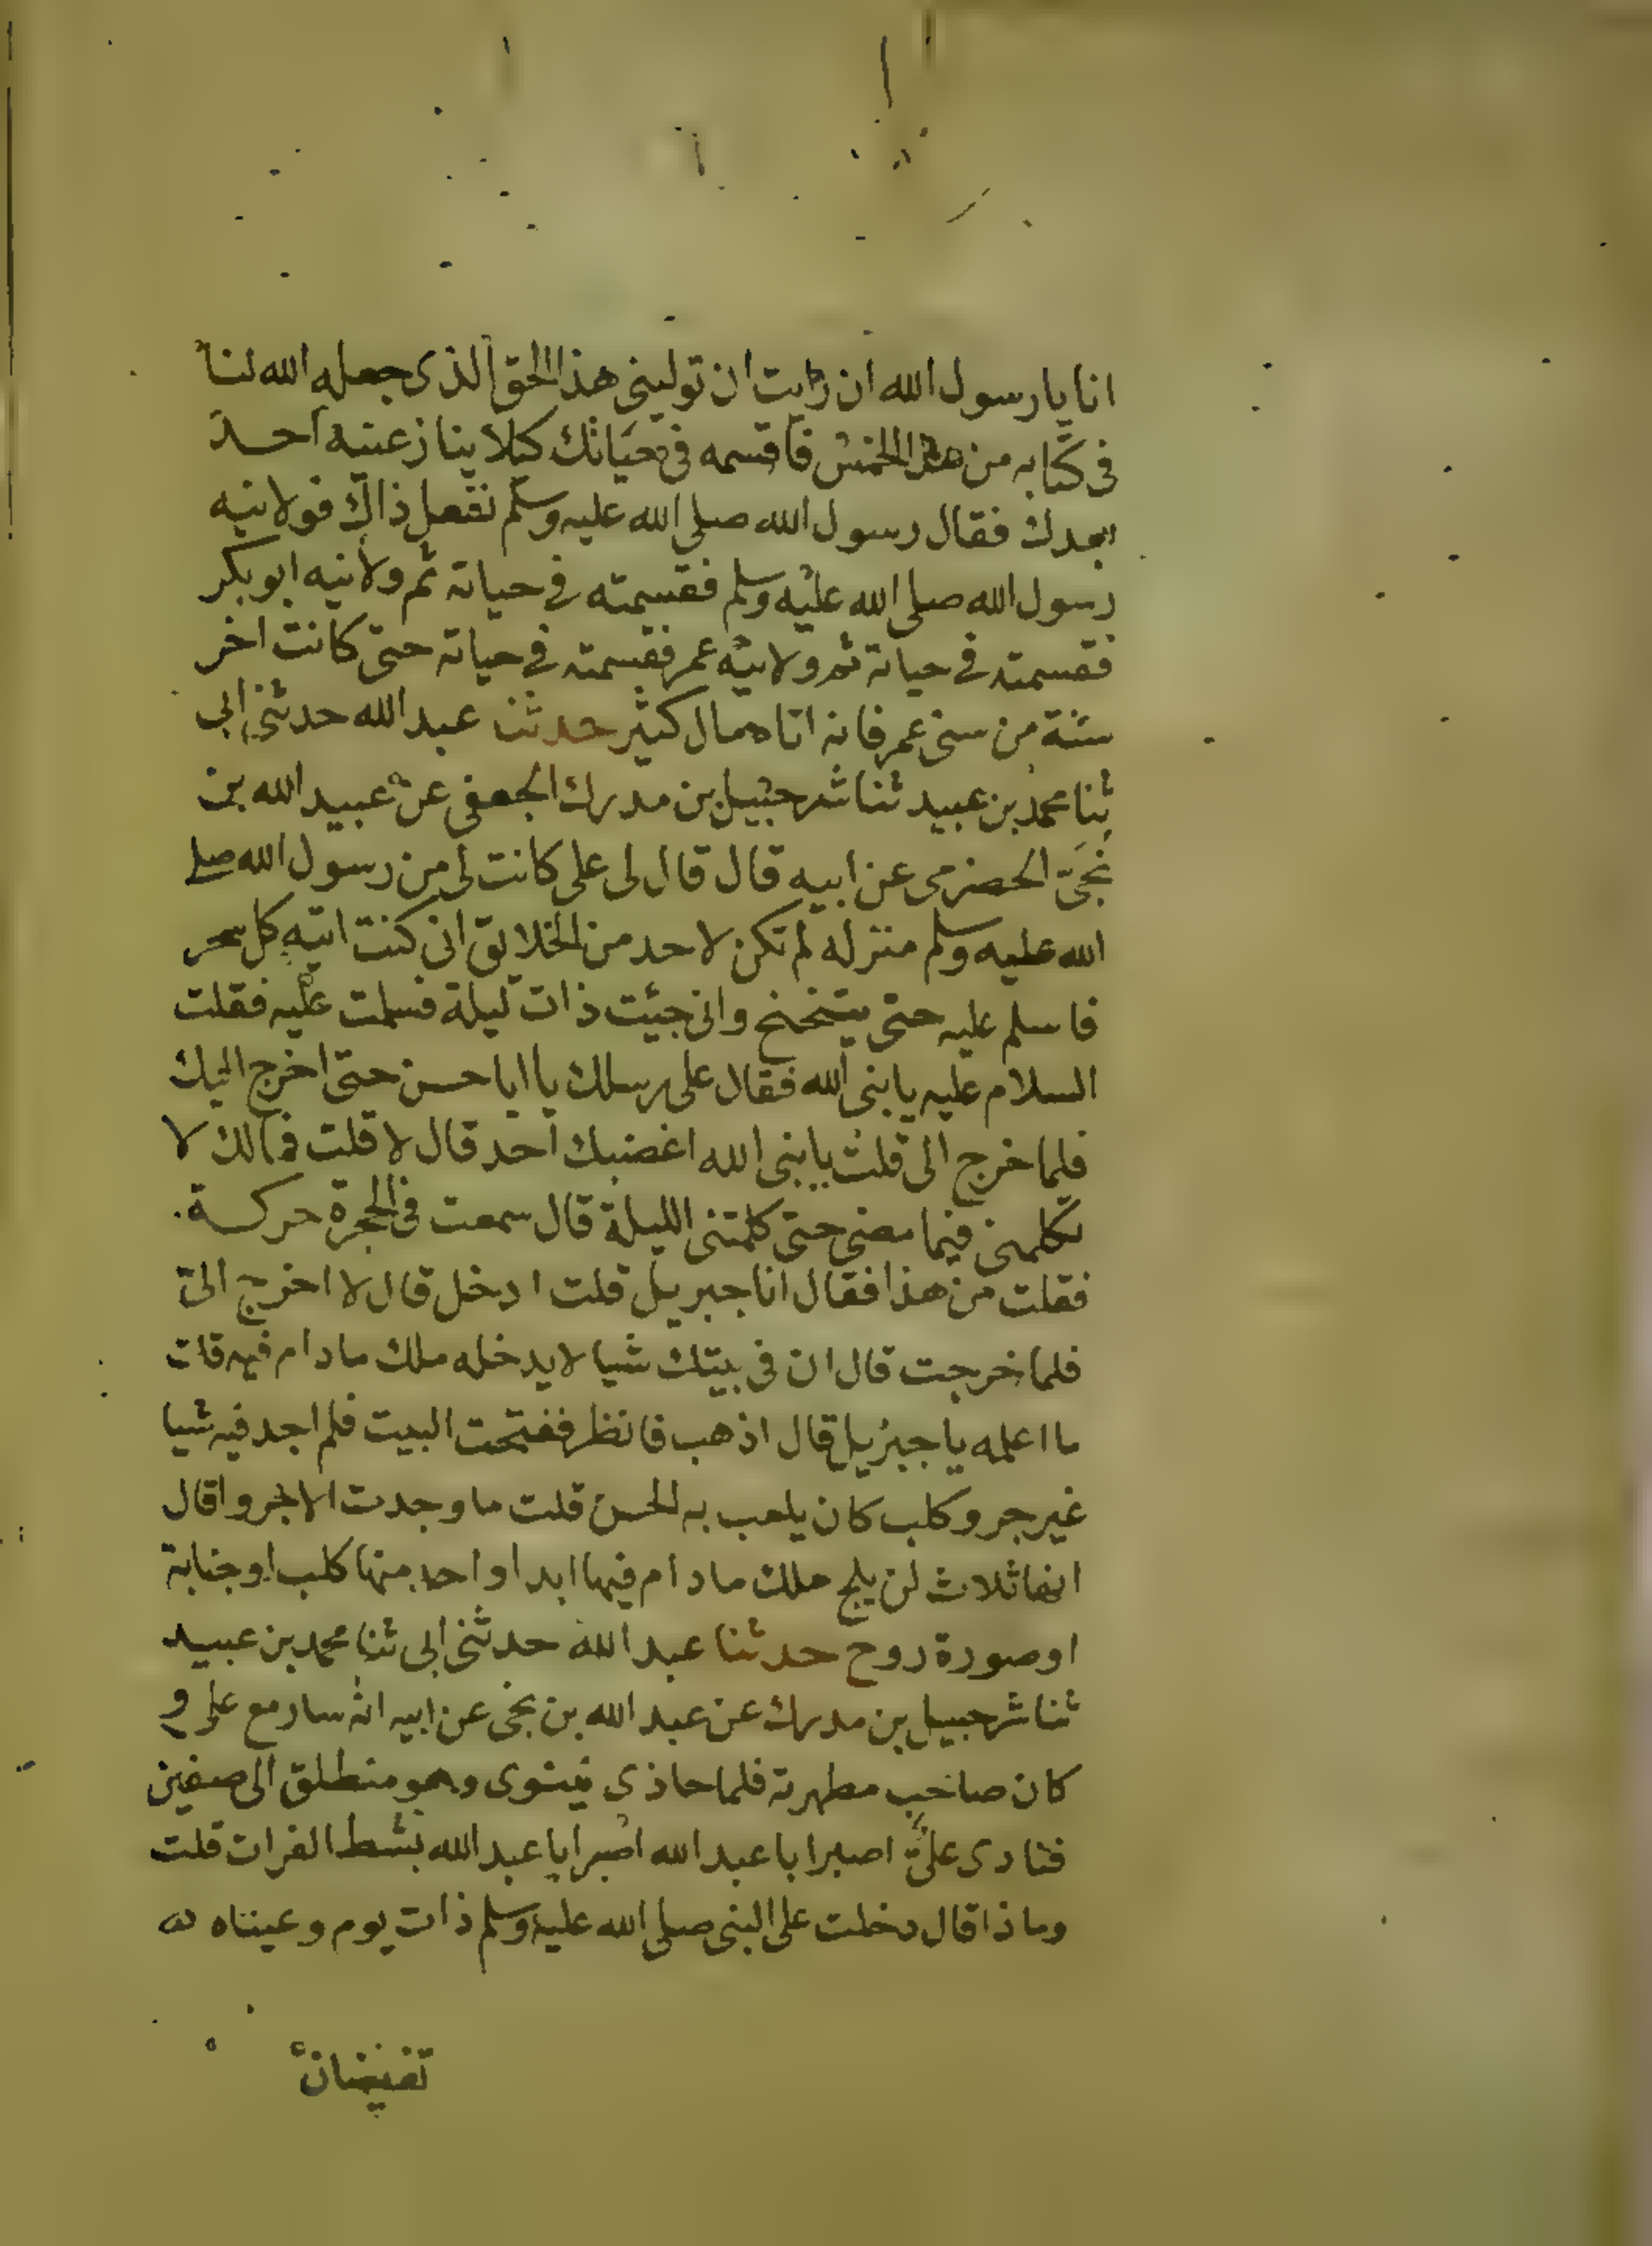 انا يا رسول الله ان رايت ان توليني هذا الحق الذى جعله الله لنا
فى كتابه من هذا الخمس فاقسمه فى حياتك كيلا ينازعنيه احد
بعدك فقال رسول الله صلى الله عليه وسلم نفعل ذاك فولانيه
رسول الله صلى الله عليه وسلم فقسمته فى حياته ثم ولانيه ابو بكر
فقسمته فى حياته ثم ولانيه عمر فقسمته فى حياته حتى كانت اخر
سنة من سنى عمر فانه اتاه مال كثير حدثنا عبد الله حدثنى ابى
ثنا محمد بن عبيد ثنا شرحبيل بن مدرك الجعفى عن عبيد الله بن
نجىّ الحضرمى عن ابيه قال قال لى على كانت لى من رسول الله صلى
الله عليه وسلم منزله لم تكن لاحد من الخلايق انى كنت اتيه كل سحر
فاسلم عليه حتى يتنحنح وانى جيئت ذات ليلة فسلمت عليه فقلت
السلام عليه يا نبى الله فقال على رسلك يا ابا حسن حتى اخرج اليك
فلما خرج الى قلت يا نبى الله اغضبك احد قال لا قلت فمالك لا
تكلمنى فيما مضى حتى كلمتنى الليلة قال سمعت فى الحجرة حركة.
فقلت من هذا فقال انا جبريل قلت ادخل قال لا اخرج الىّ
فلما خرجت قال ان فى بيتك شيا لا يدخله ملك ما دام فيه قلت
ما اعلمه يا جبريل قال اذهب فانظر ففتحت البيت فلم اجد فيه شيا
غير جرو كلب كان يلعب به الحسن قلت ما وجدت الا جروا قال
انها ثلاث لن يلج ملك ما دام فيها ابدا واحد منها كلب او جنابة
او صورة روح حدثنا عبد الله حدثنى ابى ثنا محمد بن عبيد
ثنا شرحبيل بن مدرك عن عبد الله بن نجى عن ابيه انه سار مع على و
كان صاحب مطهرته فلما حاذى نينوى وهو منطلق الى صفين
فنادى علىّ اصبر ابا عبد الله اصبر ابا عبد الله بشط الفرات قلت
وماذا قال دخلت على النبى صلى الله عليه وسلم ذات يوم وعيناه
تفيضان